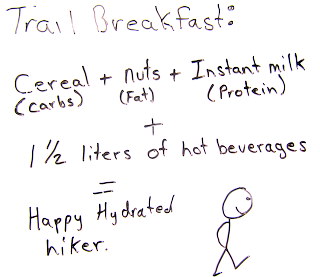 Trail Breakfast:
Cereal + nuts + Instant milk
(carbs) (Fat) (Protein)
+
1 1/2 liters of hot beverages
=
Happy Hydrated
hiker.